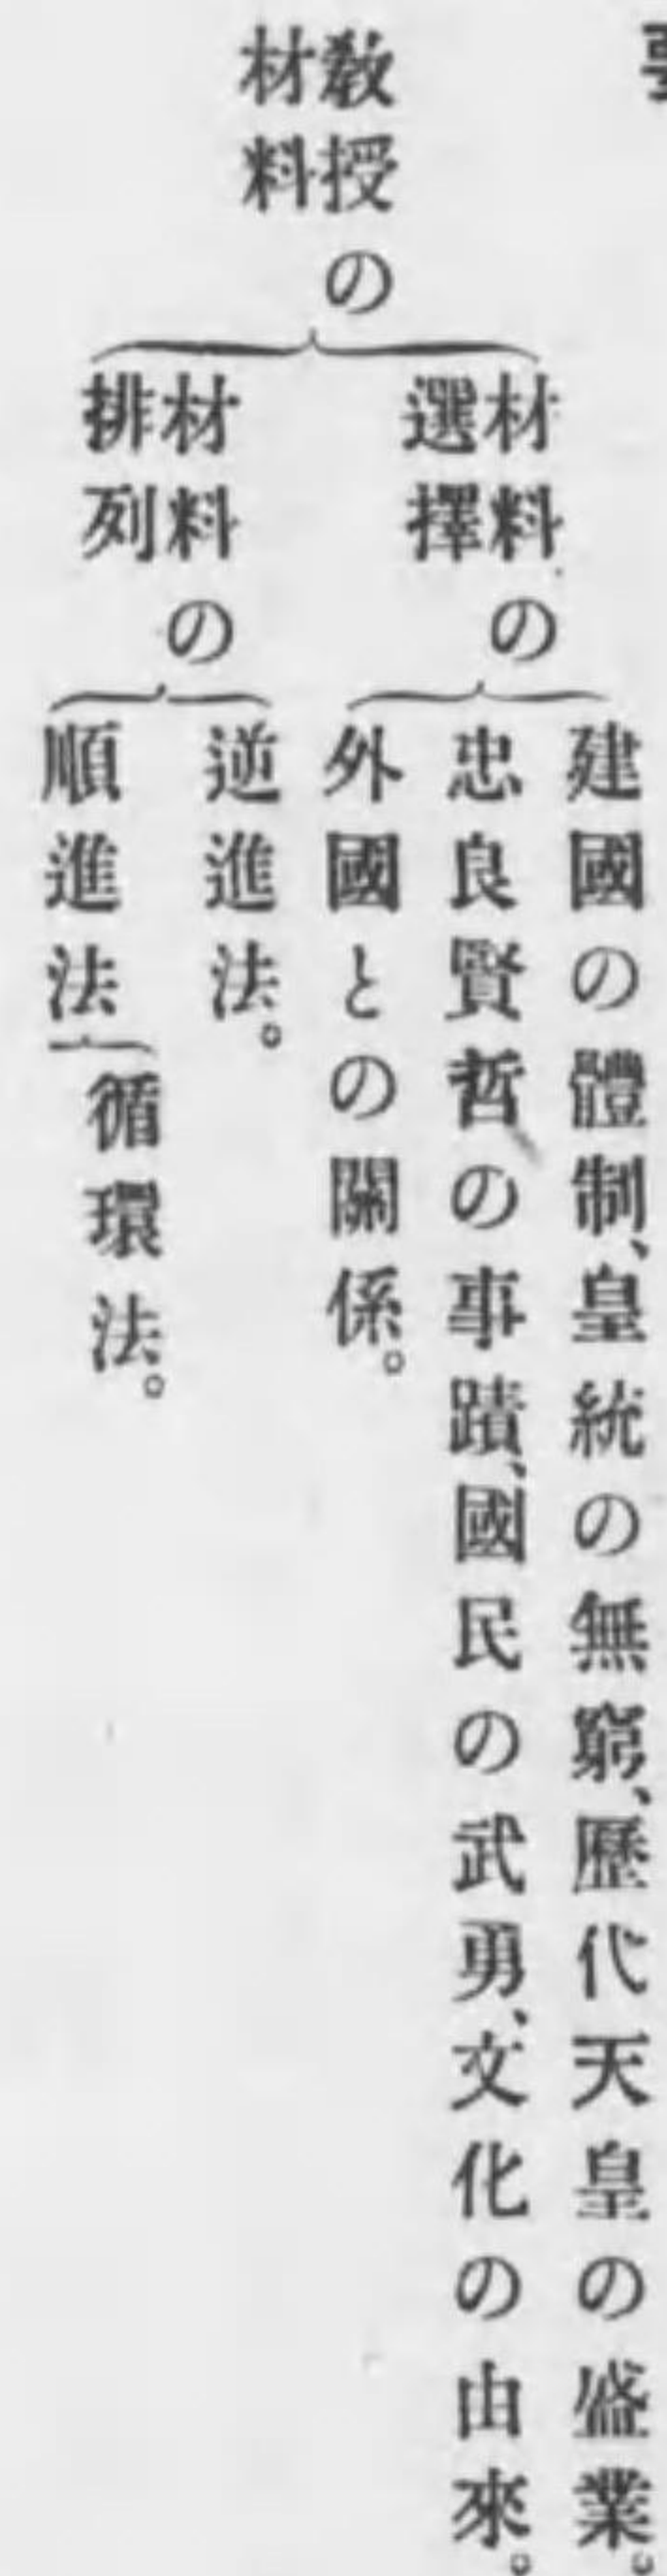 教授の
材料
材料の
選擇
建國の體制、皇統の無窮、歷代天皇の盛業。
忠良賢哲の事蹟、國民の武勇、文化の由來。
外國との關係。
材料の
排列
逆進法。
順進法
循環法。